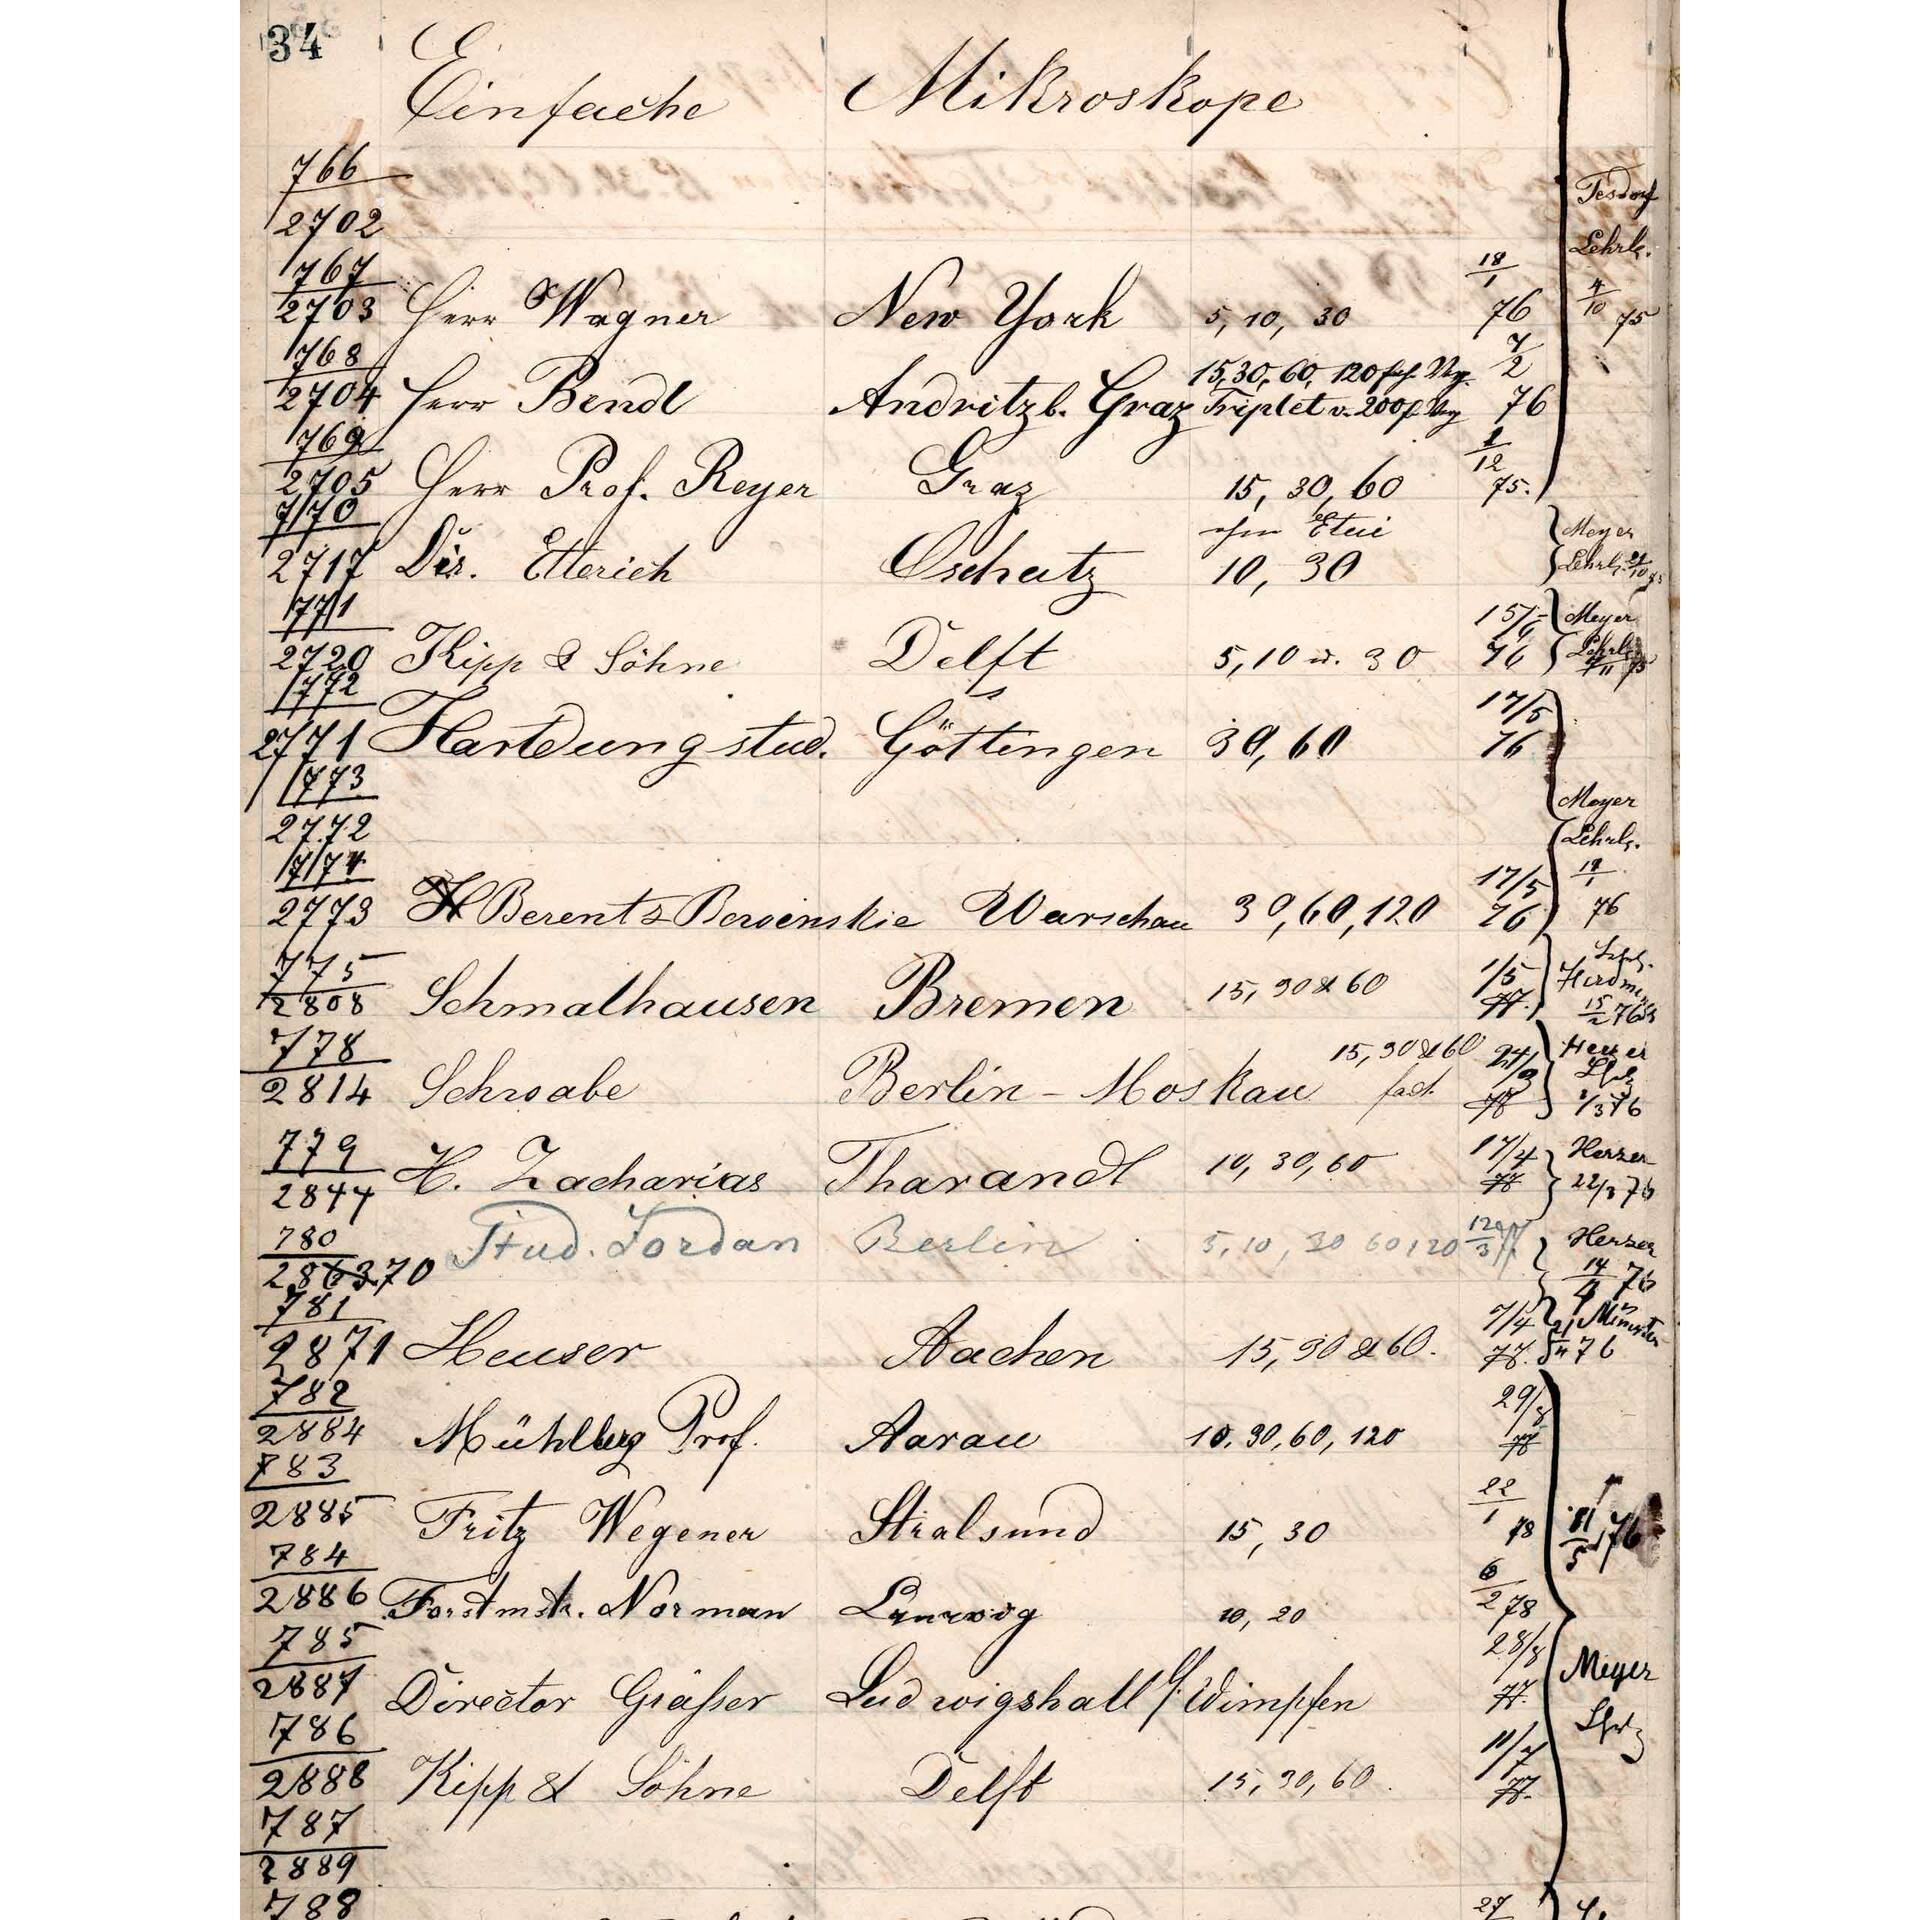 34
Einfache Mikroskope
766
2702
Tesdorf
Lehrl.
4/10 75
767
2703 Herr Wagner New York 5, 10, 30 18/1 76
768
2704 Herr Bendl Andritz b. Graz 15, 30, 60, 120 Triplet v. 200 7/2 76
769
2705 Herr Prof. Reyer Graz 15, 30, 60 2/12 75.
770
2717 Dir. Etterich Oschatz Etui 10, 30
Meyer
Lehrl. 21/10
771
2720 Kipp & Söhne Delft 5, 10 u. 30 15/6 76
Meyer
Lehrl. 75
772
2771 Hartdung stud. Göttingen 30, 60 17/5 76
773
2772
Meyer
Lehrl.
19/1
76
774
2773 Berent & Warschau 30, 60, 120 17/5 76
775
2808 Schmalhausen Bremen 15, 30 & 60 1/5 77.
15/2 76
778
2814 Schwabe Berlin - Moskau 15, 30 & 60 fach. 24/9
2/3 76
779
2844 H. Zacharias Tharandt 10, 30, 60 17/4
Herzer
22/3 76
780
286370 Stud. Jordan Berlin 5, 10, 30 60, 120 12/3 77.
Herzer
14/4 76
781
2871 Heuser Aachen 15, 30 & 60. 7/4 77.
76
782
2884 Mühlberg Prof. Aarau 10, 30, 60, 120 29/8
783
2885 Fritz Wegener Stralsund 15, 30 22/1 78
31/5 76
784
2886 Forstmstr. Norman 10, 20 6/2 78
785
2887 Director Gräßer Ludwigshall b/ Wimpfen 28/8 77.
Meyer
786
2888 Kipp & Söhne Delft 15, 30, 60. 11/7 77.
787
2889
788
27